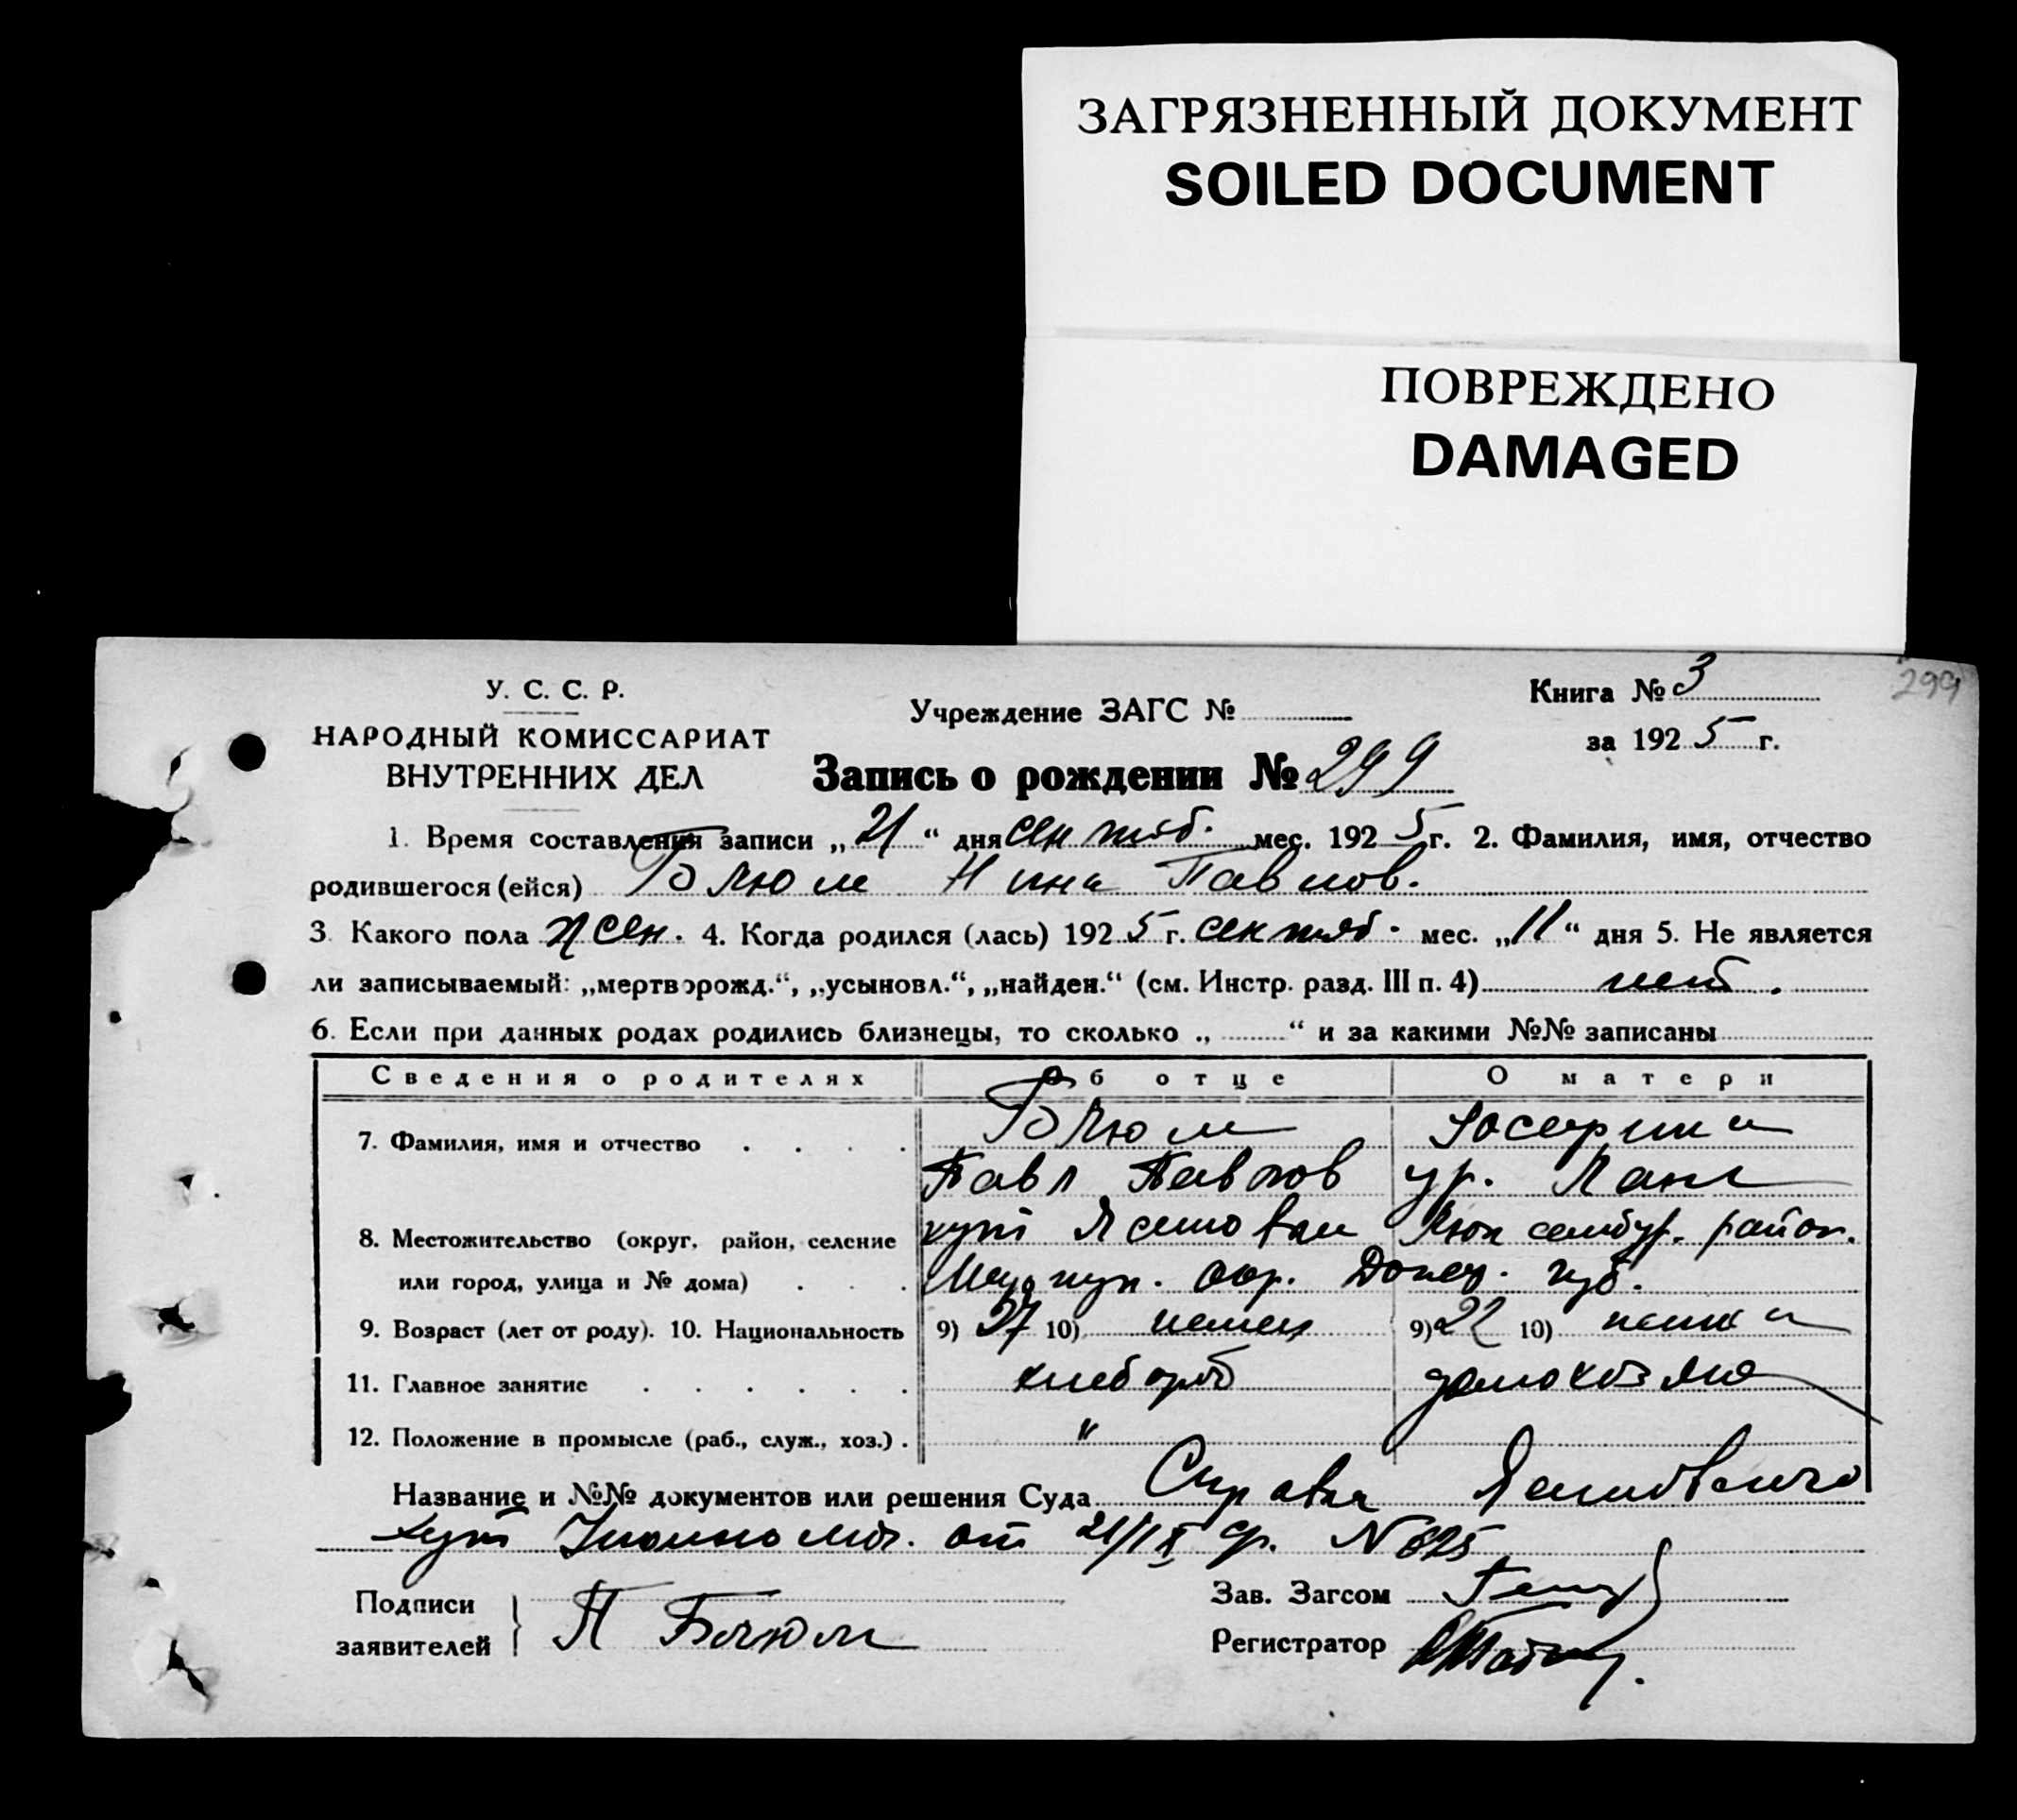 ЗАГРЯЗНЕННЫЙ ДОКУМЕНТ
SOILED DOCUMENT
ПОВРЕЖДЕНО
DAMAGED
299
У. С. С. Р.
НАРОДНЫЙ КОМИССАРИАТ
ВНУТРЕННИХ ДЕЛ
Учреждение ЗАГС №
Книга № 3
за 1925 г.
Запись о рождении № 299
1. Время составления записи „21“ дня сентяб. мес. 1925 г. 2. Фамилия, имя, отчество
родившегося (ейся) Блюм Нина Павлов.
3. Какого пола жен. 4. Когда родился (лась) 1925 г. сентяб. мес. „11“ дня 5. Не является
ли записываемый: „мертворожд.“, „усыновл.“, „найден.“ (см. Инстр. разд. III п. 4) нет.
6. Если при данных родах родились близнецы, то сколько „ “ и за какими №№ записаны
Сведения о родителях Об отце О матери
7. Фамилия, имя и отчество Блюм Юсефина
Павл Павлов ур. Ланг
8. Местожительство (округ, район, селение хут Ясиновки Люксембур. район.
или город, улица и № дома) окр. Донец. губ.
9. Возраст (лет от роду). 10. Национальность 9) 27 10) немец 9) 22 10) немка
11. Главное занятие хлебороб домохозяйка
12. Положение в промысле (раб., служ., хоз.) "
Название и №№ документов или решения Суда Справка
хут от 21/IX № 625
Подписи
заявителей П Блюм
Зав. Загсом
Регистратор